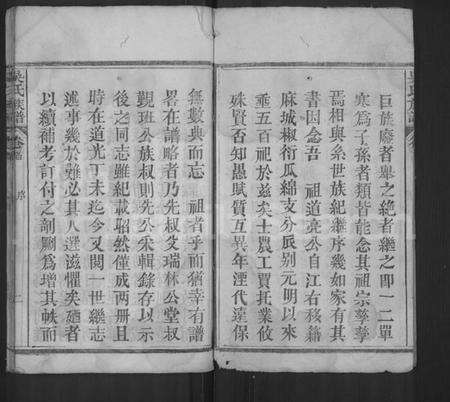 巨族廢者舉之絶者繼之即一二單
寒爲子孫者類皆能念其祖宗孳孳
焉相與糸世族紀繼序幾如家有其
書因念吾 祖道亮公自江右移籍
麻城椒衍瓜綿支分派别元明以來
垂五百祀於兹矣士農工賈抚業攸
殊賢否知愚賦質互異年湮代遠保
無數典而忘 祖者乎而猶幸有譜
畧在譜略者乃先叔父瑞林公堂叔
觐班公族叔則先公采輯錄存以示
後之同志雖紀載昭然僅成两册且
時在道光丁未迄今又閲一世繼志
述事幾於難必其人逞滋懼矣廼者
以續補考訂付之剞劂爲增其帙而
吳氏族譜
卷首
序
二
吳氏族譜
卷